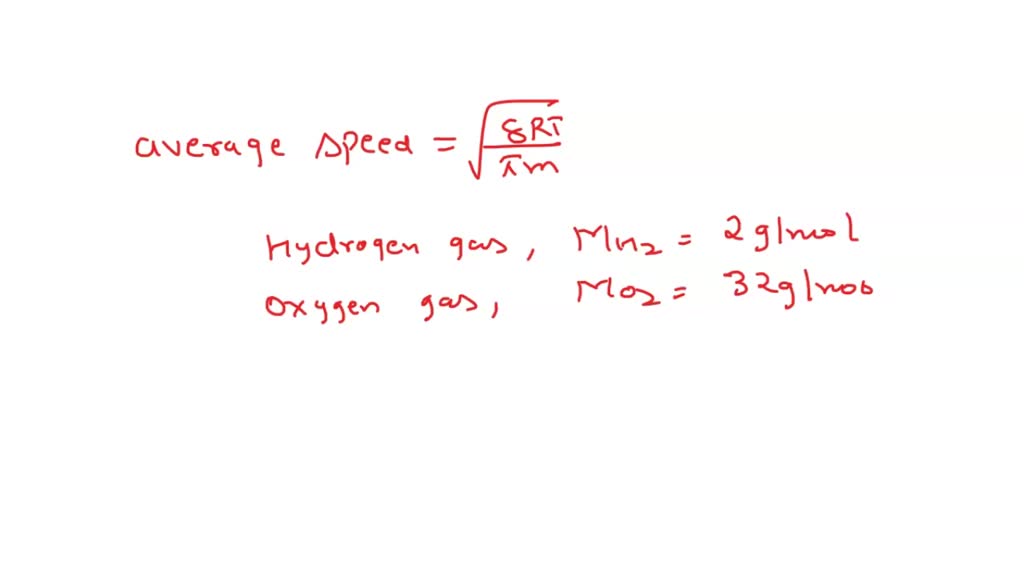 average speed = √(8RT/πm)
Hydrogen gas, MH2 = 2g/mol
Oxygen gas, MO2 = 32g/mol